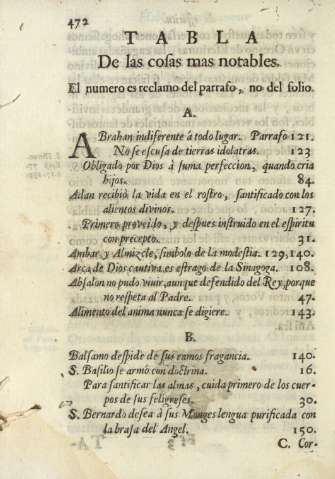 472
TABLA
De las cosas mas notables.
El numero es reclamo del parrafo, no del folio.
A.
ABrahan indiferente à todo lugar. Parrafo 121.
No se escusa de tierras idolatras. 123
Obligado por Dios à suma perfeccion, quando cria
hijos. 84.
Adan recibiò la vida en el rostro, santificado con los
alientos divinos. 127.
Primero proveido, y despues instruido en el espiritu
con precepto. 31.
Ambar y Almizcle, simbolo de la modestia. 129, 140.
Arca de Dios cautiva es estrago de la Sinagoga. 108.
Absalon no pudo vivir, aunque defendido del Rey, porque
no respeta al Padre. 47.
Alimento del anima nunca se digiere. 143.
B.
Balsamo despide de sus ramos fragancia. 140.
S. Basilio se armò con doctrina. 16.
Para santificar las almas, cuida primero de los cuer-
pos de sus feligreses. 30.
S. Bernardo desea à sus Monges lengua purificada con
la brasa del Angel. 150.
C. Cor-